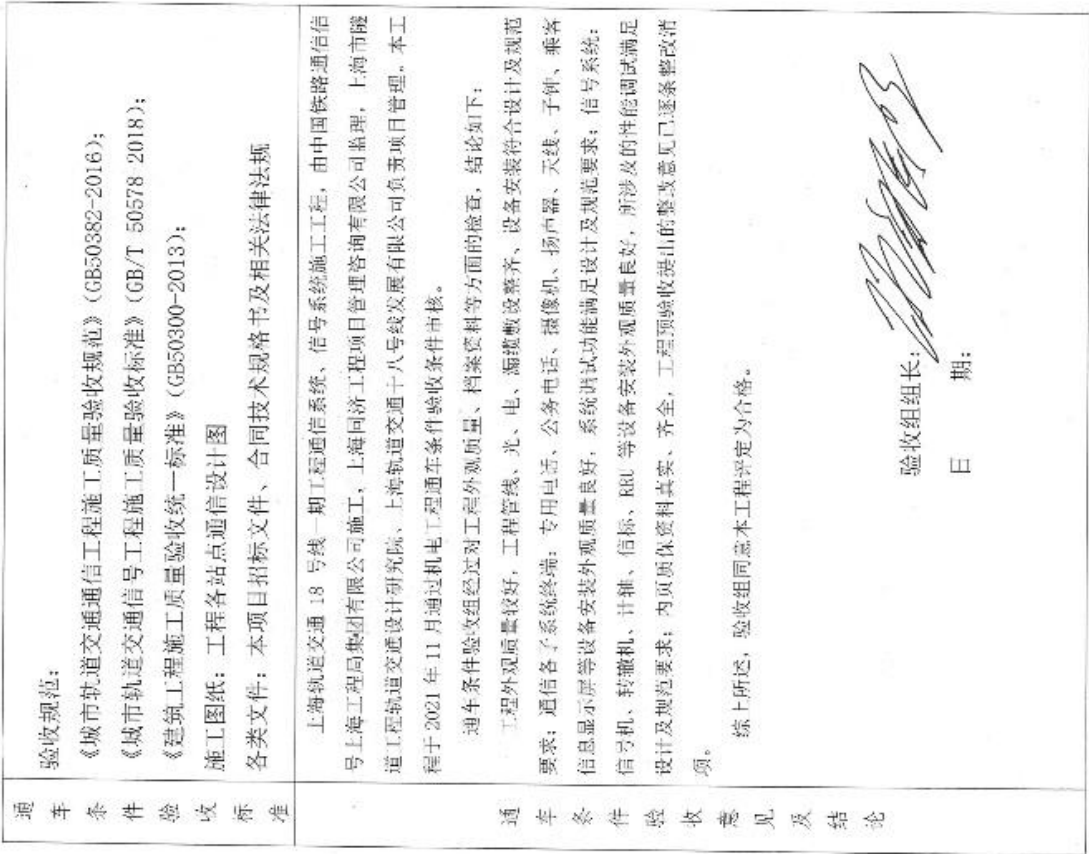 通车条件验收标准
验收规范：
《城市轨道交通通信工程施工质量验收规范》（GB50382-2016）；
《城市轨道交通信号工程施工质量验收标准》（GB/T 50578 2018）；
《建筑工程施工质量验收统一标准》（GB50300-2013）；
施工图纸：工程各站点通信设计图
各类文件：本项目招标文件、合同技术规格书及相关法律法规
通车条件验收意见及结论
上海轨道交通 18 号线一期工程通信系统、信号系统施工工程，由中国铁路通信信
号上海工程局集团有限公司施工，上海同济工程项目管理咨询有限公司监理，上海市隧
道工程轨道交通设计研究院、上海轨道交通十八号线发展有限公司负责项目管理。本工
程于 2021 年 11 月通过机电工程通车条件验收条件审核。
通车条件验收组经过对工程外观质量、档案资料等方面的检查，结论如下：
工程外观质量较好，工程管线、光、电、漏缆敷设整齐、设备安装符合设计及规范
要求；通信各子系统终端：专用电话、公务电话、摄像机、扬声器、天线、子钟、乘客
信息显示屏等设备安装外观质量良好，系统调试功能满足设计及规范要求；信号系统：
信号机、转辙机、计轴、信标、RRU 等设备安装外观质量良好，所涉及的性能调试满足
设计及规范要求；内页质保资料真实、齐全，工程预验收提出的整改意见已逐条整改消
项。
综上所述，验收组同意本工程评定为合格。
验收组组长：
日 期：